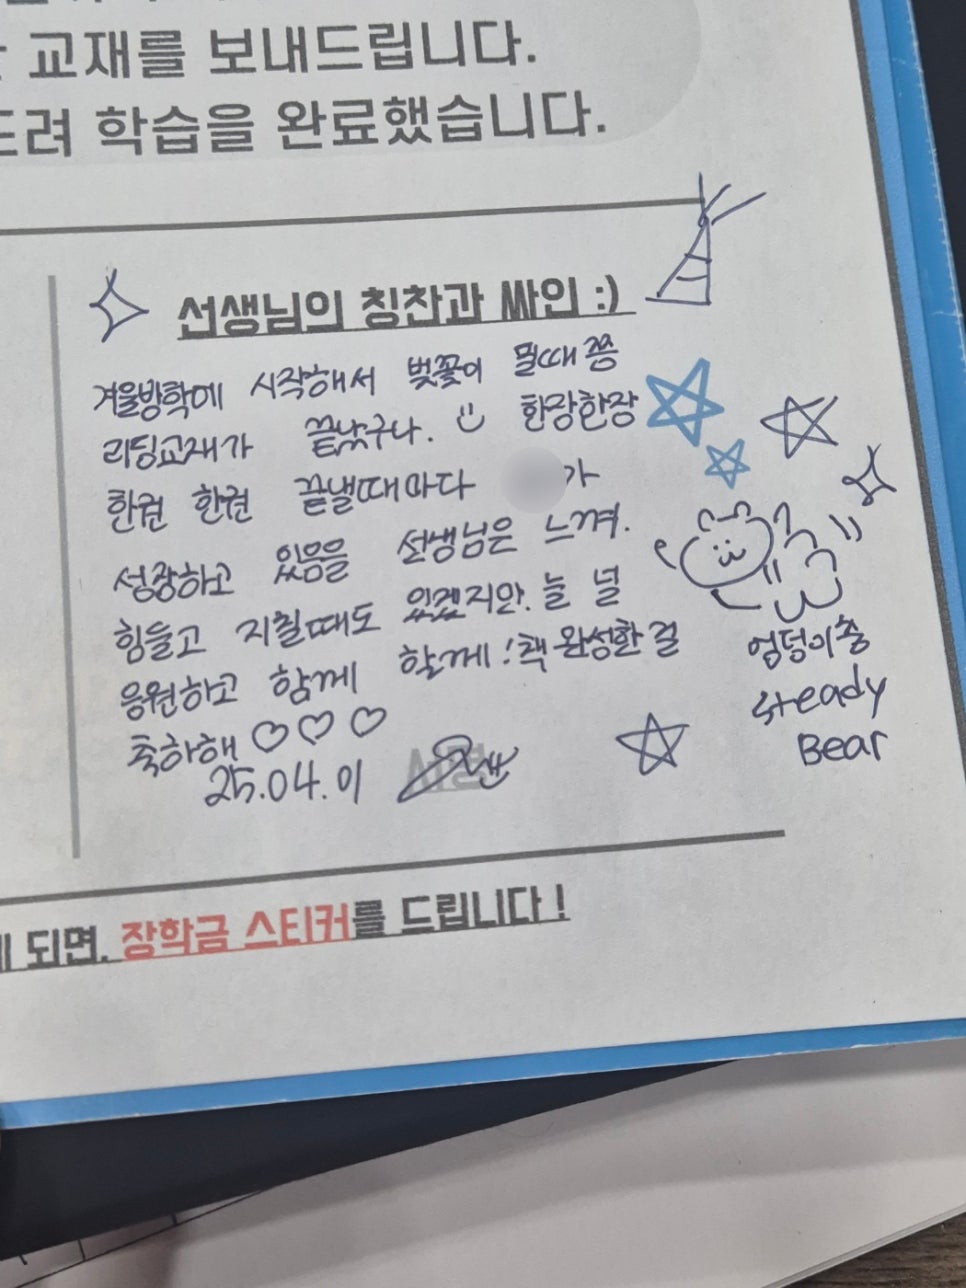 교재를 보내드립니다.
드려 학습을 완료했습니다.
선생님의 칭찬과 싸인 :)
겨울방학에 시작해서 벚꽃이 필때쯤
리딩교재가 끝났구나. 한장한장
한권 한권 끝낼때마다 가
성장하고 있음을 선생님은 느껴.
힘들고 지칠때도 있겠지만. 늘 널
응원하고 함께 할께! 책 완성한 걸
축하해 ♡♡♡
25.04.01
서명
엉덩이춤
steady
Bear
되면, 장학금 스티커를 드립니다!